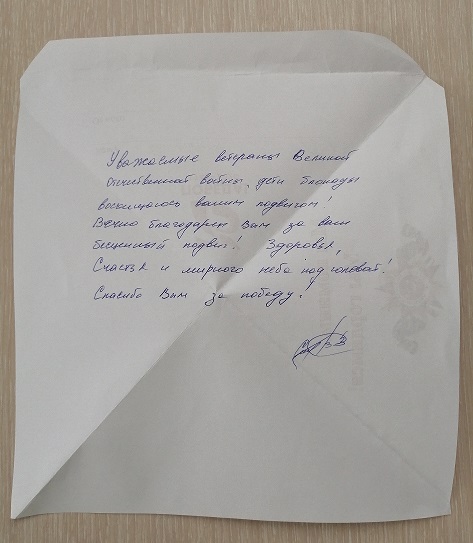 Уважаемые ветераны Великой
Отечественной войны, дети блокады
восхищаюсь вашим подвигом!
Вечно благодарен Вам за ваш
бесценный подвиг!! Здоровья,
Счастья и мирного неба над головой!
Спасибо Вам за победу.